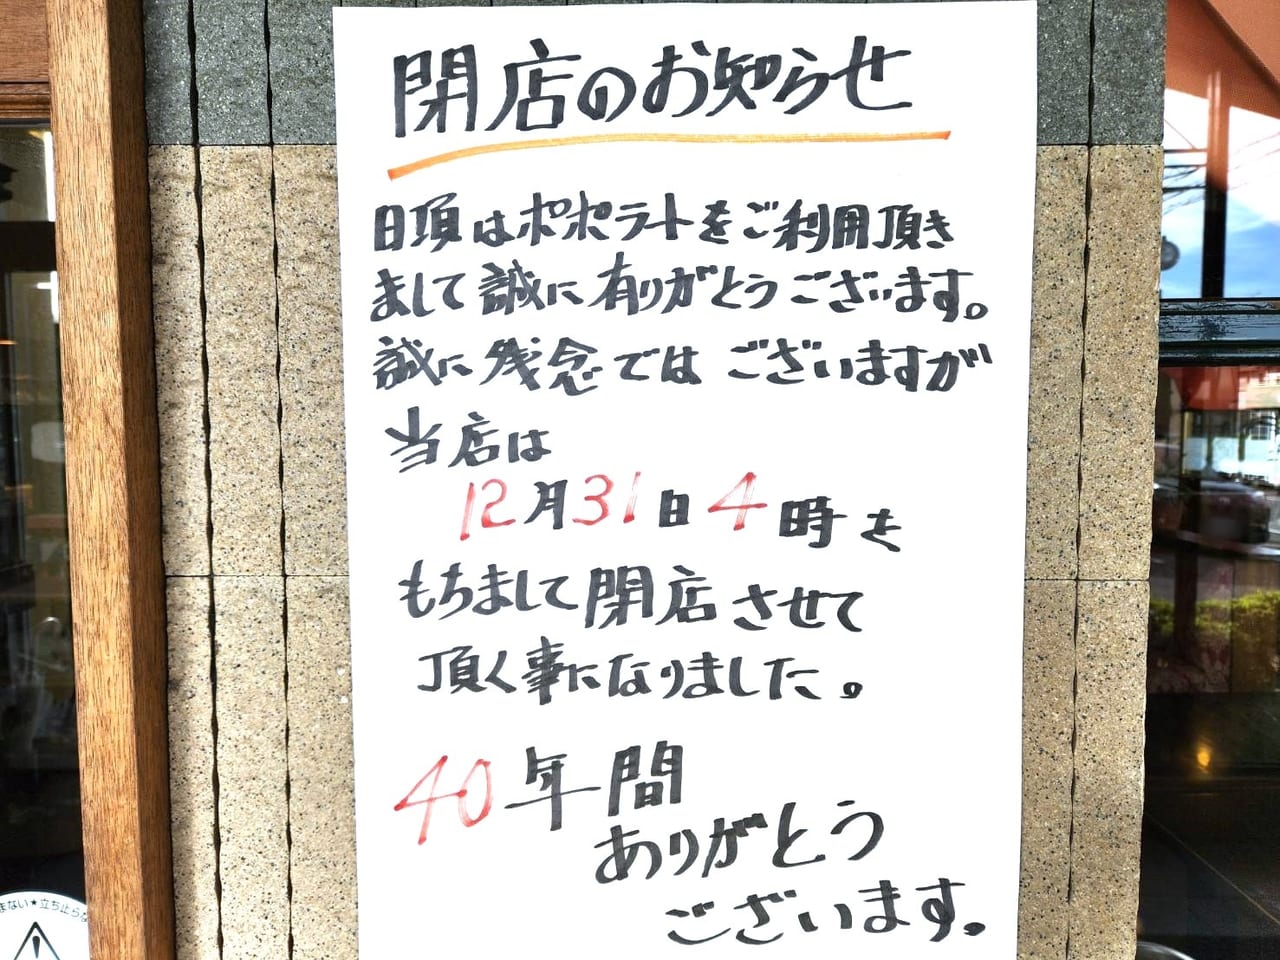 閉店のお知らせ
日頃はポポラートをご利用頂き
まして誠に有りがとうございます。
誠に残念ではございますが
当店は
12月31日4時を
もちまして閉店させて
頂く事になりました。
40年間
ありがとう
ございます。
まない★立ち止らな